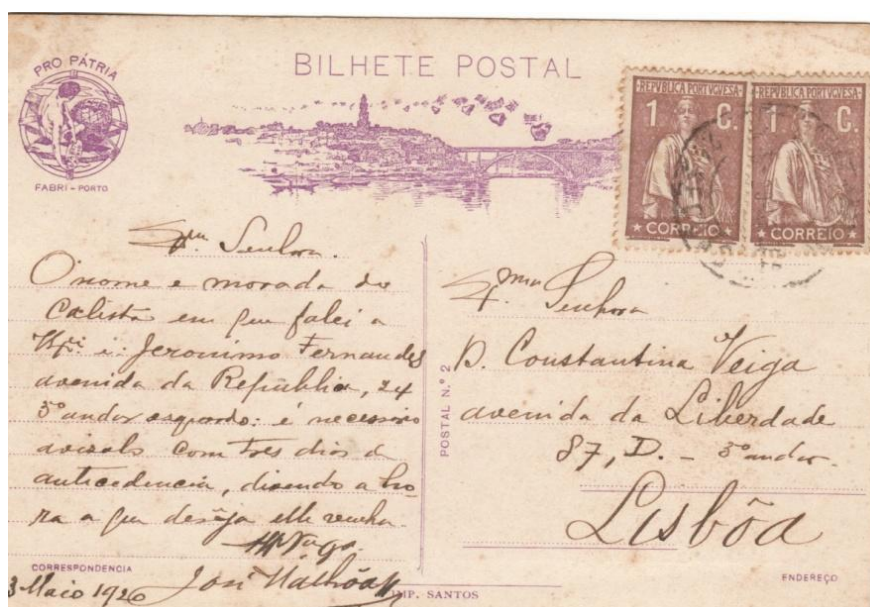 BILHETE POSTAL
PRO PÁTRIA
FABRI - PORTO
REPVBLICA PORTVGVESA
1 C.
CORREIO
REPVBLICA PORTVGVESA
1 C.
CORREIO
Exma Senhora.
O nome e morada do
Calista em que falei a
é: Jeronimo Fernandes
avenida da Republica, 24
5º andar esquerdo: é necessario
avisal-o com tres dias de
antecedencia, dizendo a ho-
ra a que deseja elle venha.
CORRESPONDENCIA
3 Maio 1926 José Malhôa
POSTAL N.º 2
Exma Senhora
D. Constantina Veiga
avenida da Liberdade
87, D. - 3º andar.
Lisbôa
ENDEREÇO
IMP. SANTOS